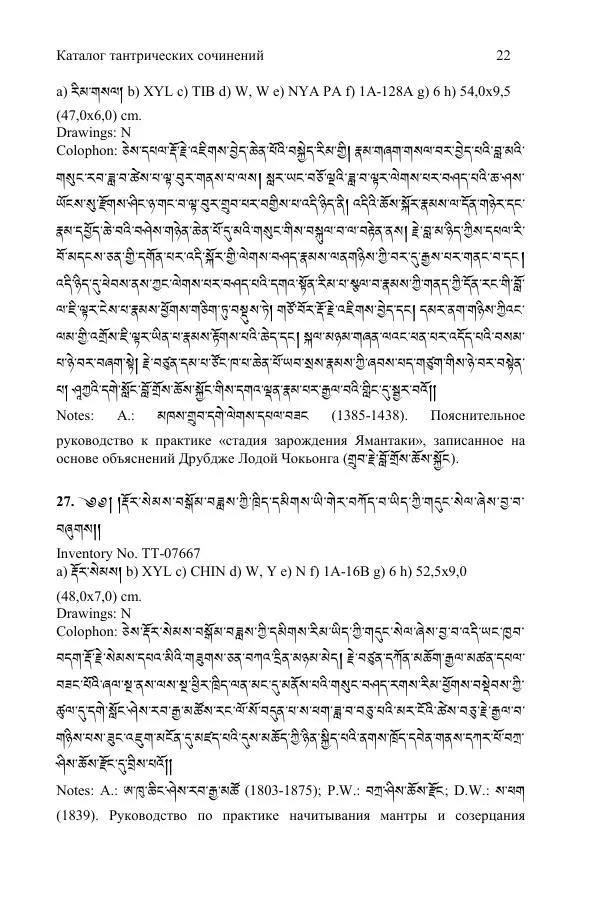 Каталог тантрических сочинений 22
a) རིམ་གསལ། b) XYL c) TIB d) W, W e) NYA PA f) 1A-128A g) 6 h) 54,0x9,5
(47,0x6,0) cm.
Drawings: N
Colophon: ཅེས་དཔལ་རྡོ་རྗེ་འཇིགས་བྱེད་ཆེན་པོའི་བསྐྱེད་རིམ་གྱི། རྣམ་གཞག་གསལ་བར་བྱེད་པའི་བླ་མའི་
གསུང་རབ་ཟླ་བ་ཚེས་པ་ལྟ་བུར་གནས་པ་ལས། སླར་ཡང་བཅོ་ལྔའི་ཟླ་བ་ལྟར་ལེགས་པར་བཤད་པའི་ཆ་ཤས་
ཡོངས་སུ་རྫོགས་ཤིང་ཉ་གང་བ་ལྟ་བུར་གྲུབ་པར་བགྱིས་པ་འདི་ཉིད་ནི། འདིའི་ཆོས་སྐོར་རྣམས་ལ་དོན་གཉེར་དང་
རྣམ་དཔྱོད་ཆེ་བའི་བཤེས་གཉེན་ཆེན་པོ་དུ་མའི་གསུང་གིས་བསྐུལ་བ་ལ་བརྟེན་ནས། རྗེ་བླ་མ་ཉིད་ཀྱིས་དཔལ་རི་
བོ་མདངས་ཅན་གྱི་དགོན་པར་འདི་སྐོར་གྱི་ལེགས་བཤད་རྣམས་ལན་གཉིས་ཀྱི་བར་དུ་རྒྱས་པར་གནང་བ་དང།
འདི་ཉིད་དུ་ཕེབས་ནས་ཀྱང་ལེགས་པར་བཤད་པའི་དགའ་སྟོན་རིམ་པ་སྩལ་བ་རྣམས་ཀྱི་གནད་ཀྱི་དོན་རང་གི་བློ་
ལ་ཇི་ལྟར་ངེས་པ་རྣམས་ཕྱོགས་གཅིག་ཏུ་བསྡུས་ཏེ། གཙོ་བོར་རྡོ་རྗེ་འཇིགས་བྱེད་དང། དམར་ནག་གཉིས་ཀྱིའང་
ལམ་གྱི་འགྲོས་ཇི་ལྟར་ཡིན་པ་རྣམས་རྟོགས་པའི་ཆེད་དང། སྐལ་མཉམ་གཞན་ལའང་ཕན་པར་འདོད་པའི་བསམ་
པ་ཉེ་བར་བཞག་སྟེ། རྗེ་བཙུན་དམ་པ་ཙོང་ཁ་པ་ཆེན་པོ་ཡབ་སྲས་རྣམས་ཀྱི་ཞབས་པད་གཙུག་གིས་ཉེ་བར་བསྟེན་
པ། ཤཱཀྱའི་དགེ་སློང་བློ་གྲོས་ཆོས་སྐྱོང་གིས་དགའ་ལྡན་རྣམ་པར་རྒྱལ་བའི་གླིང་དུ་སྦྱར་བའོ།།
Notes: A.: མཁས་གྲུབ་དགེ་ལེགས་དཔལ་བཟང (1385-1438). Пояснительное
руководство к практике «стадия зарождения Ямантаки», записанное на
основе объяснений Друбдже Лодой Чокьонга (གྲུབ་རྗེ་བློ་གྲོས་ཆོས་སྐྱོང).
27. ༄༅། །རྡོར་སེམས་བསྒོམ་བཟླས་ཀྱི་ཁྲིད་དམིགས་ཡི་གེར་བཀོད་པ་ཡིད་ཀྱི་གདུང་སེལ་ཞེས་བྱ་བ་
བཞུགས།།
Inventory No. TT-07667
a) རྡོར་སེམས། b) XYL c) CHIN d) W, Y e) N f) 1A-16B g) 6 h) 52,5x9,0
(48,0x7,0) cm.
Drawings: N
Colophon: ཅེས་རྡོར་སེམས་བསྒོམ་བཟླས་ཀྱི་དམིགས་རིམ་ཡིད་ཀྱི་གདུང་སེལ་ཞེས་བྱ་བ་འདི་ཡང་ཁྱབ་
བདག་རྡོ་རྗེ་སེམས་དཔའ་མིའི་གཟུགས་ཅན་བཀའ་དྲིན་མཉམ་མེད། རྗེ་བཙུན་དཀོན་མཆོག་རྒྱལ་མཚན་དཔལ་
བཟང་པོའི་ཞལ་སྔ་ནས་ལས་སྔ་ཕྱིར་ཁྲིད་ལན་མང་དུ་མནོས་པའི་གསུང་བཤད་རགས་རིམ་ཕྱོགས་བསྡེབས་ཀྱི་
ཚུལ་དུ་དགེ་སློང་ཤེས་རབ་རྒྱ་མཚོས་རང་ལོ་སོ་བདུན་པ་ས་ཕག་ཟླ་བ་བཅུ་པའི་མར་ངོའི་ཚེས་བཅུ་རྗེ་རྒྱལ་བ་
གཉིས་པས་ཟུང་འཇུག་མངོན་དུ་མཛད་པའི་དུས་མཆོད་ཀྱི་ཉིན་སྐྱིད་པའི་ནགས་ཁྲོད་དབེན་གནས་དཀར་པོ་བཀྲ་
ཤིས་ཆོས་རྫོང་དུ་བྲིས་པའོ།།
Notes: A.: ཨ་ཁུ་ཆིང་ཤེས་རབ་རྒྱ་མཚོ (1803-1875); P.W.: བཀྲ་ཤིས་ཆོས་རྫོང; D.W.: ས་ཕག
(1839). Руководство по практике начитывания мантры и созерцания